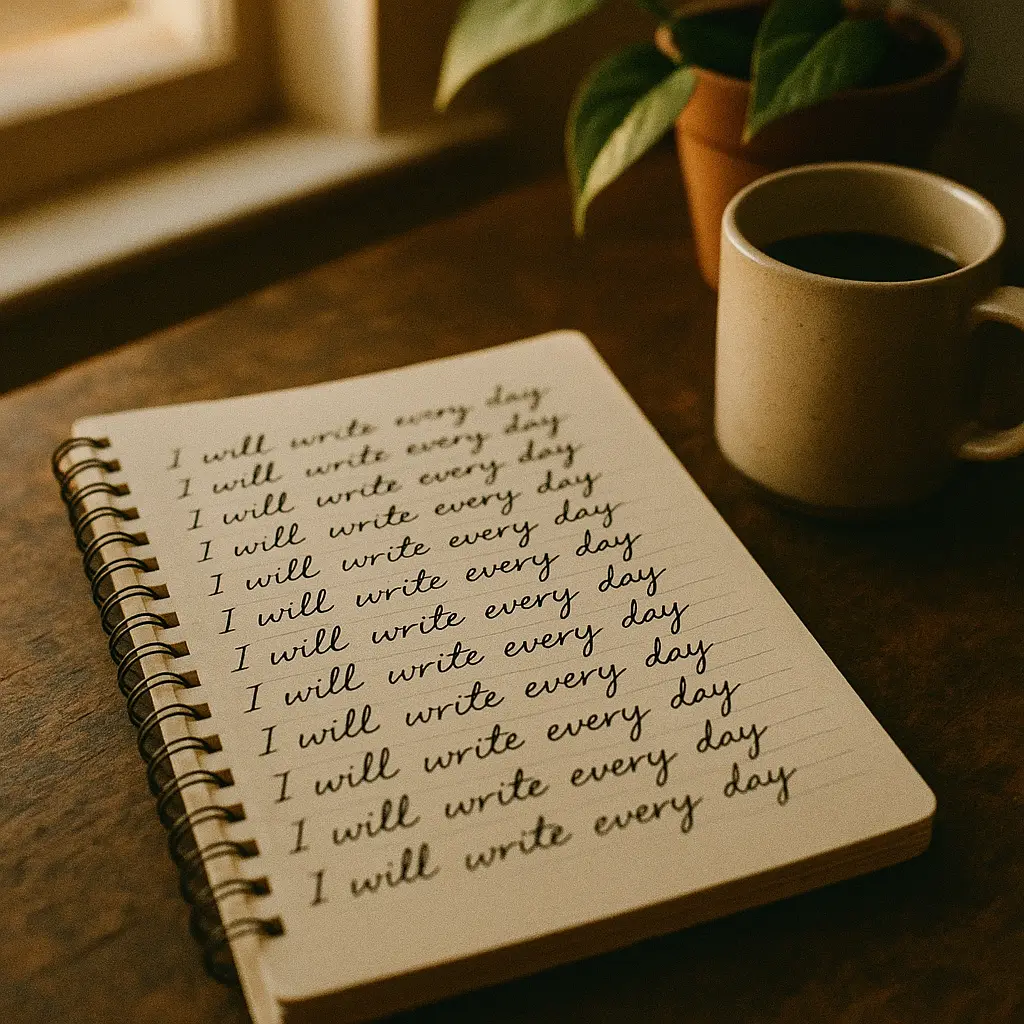 I will write every day
I will write every day
I will write every day
I will write every day
I will write every day
I will write every day
I will write every day
I will write every day
I will write every day
I will write every day
I will write every day
I will write every day